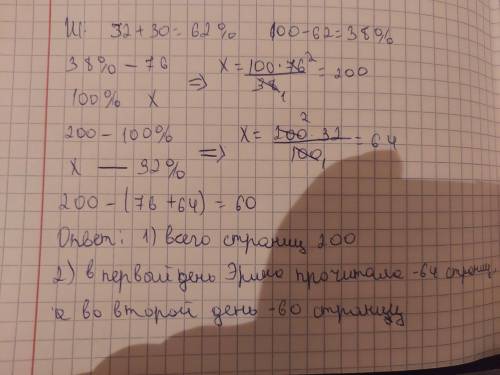 Ш: 32+30=62% 100-62=38%
38% - 76 => X = 100·76² / 38₁ = 200
100% X
200 - 100% => X = 200² · 32 / 100₁ = 64
X — 32%
200 - (76 + 64) = 60
Ответ: 1) всего страниц 200
2) в первый день Эрмо прочитала -64 страниц
а во второй день -60 страницу